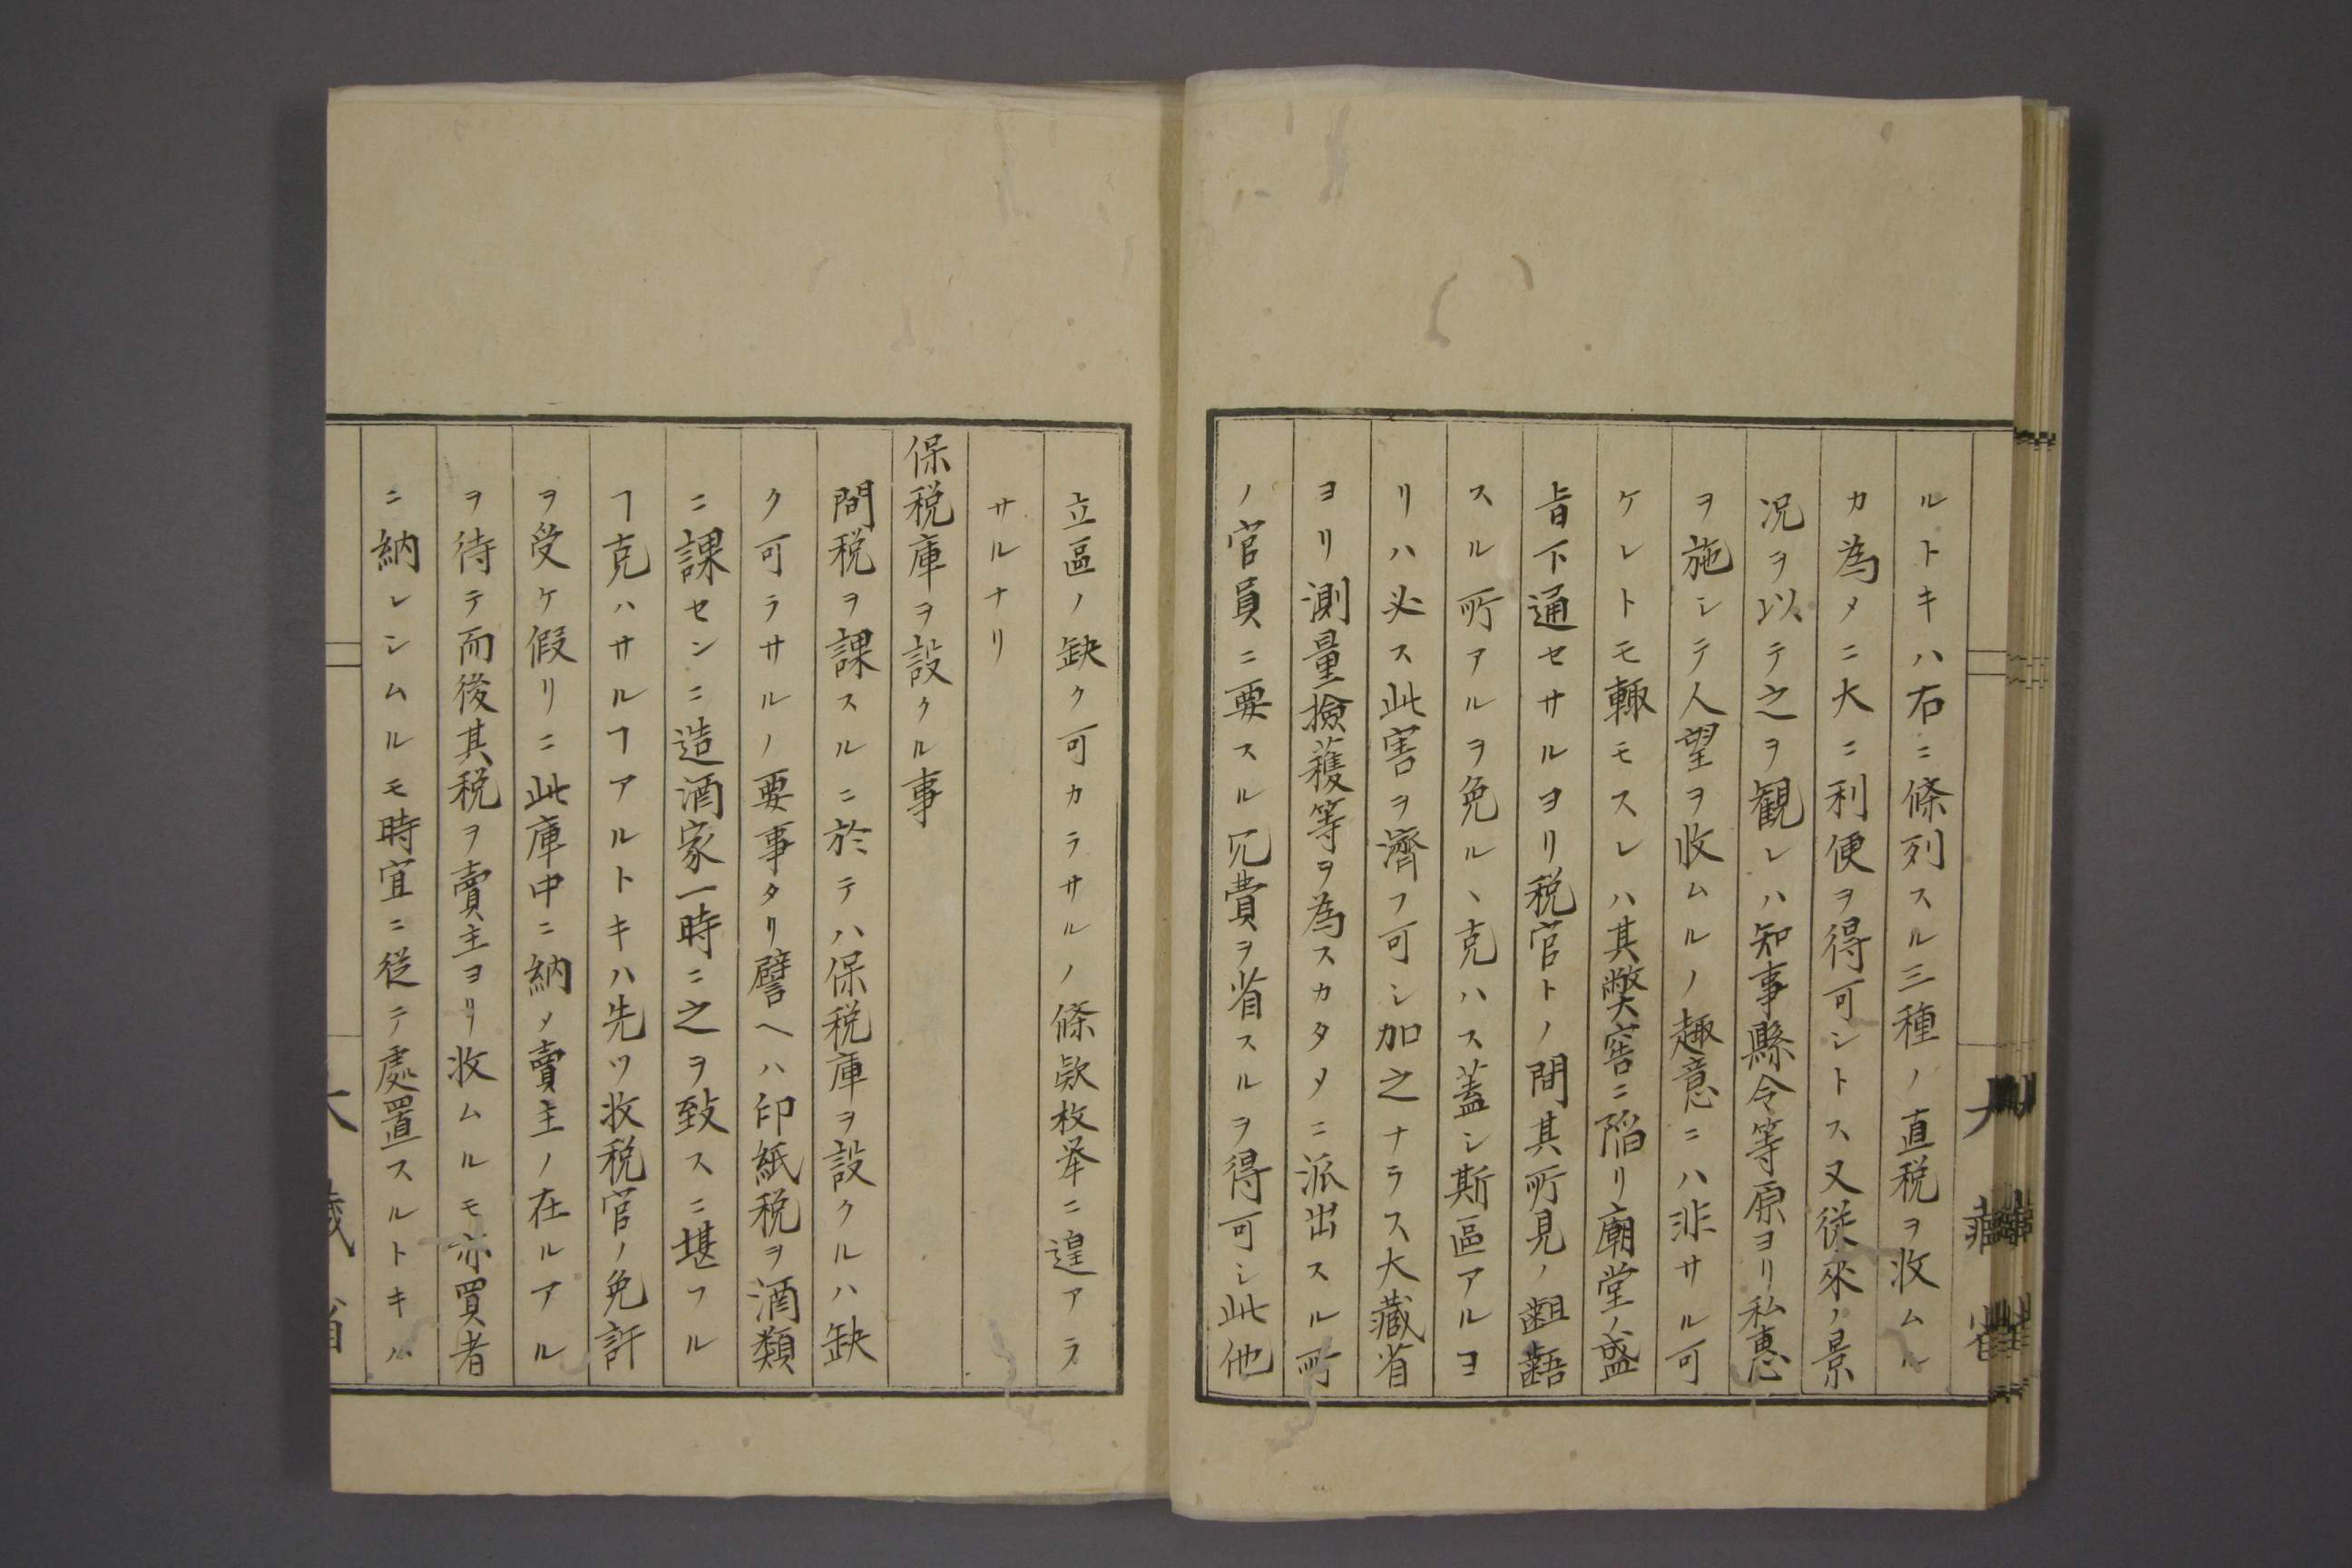 ルトキハ右ニ條列スル三種ノ直税ヲ收ムル
カ為メニ大ニ利便ヲ得可シトス又従來ノ景
況ヲ以テ之ヲ観レハ知事縣令等原ヨリ私惠
ヲ施シテ人望ヲ收ムルノ趣意ニハ非サル可
ケレトモ輙モスレハ其弊窖ニ陥リ廟堂ノ盛
旨下通セサルヨリ税官トノ間其所見ノ齟齬
スル所アルヲ免ルヽ克ハス蓋シ斯區アルヨ
リハ必ス此害ヲ濟フ可シ加之ナラス大藏省
ヨリ測量撿穫等ヲ為スカタメニ派出スル所
ノ官員ニ要スル冗費ヲ省スルヲ得可シ此他
立區ノ缺ク可カラサルノ條欵枚举ニ遑アラ
サルナリ
保税庫ヲ設クル事
間税ヲ課スルニ於テハ保税庫ヲ設クルハ缺
ク可ラサルノ要事タリ譬ヘハ印紙税ヲ酒類
ニ課センニ造酒家一時ニ之ヲ致スニ堪フル
ヿ克ハサルヿアルトキハ先ツ收税官ノ免許
ヲ受ケ假リニ此庫中ニ納メ賣主ノ在ルアル
ヲ待テ而後其税ヲ賣主ヨリ收ムルモ亦買者
ニ納レシムルモ時宜ニ従テ處置スルトキハ
大藏省